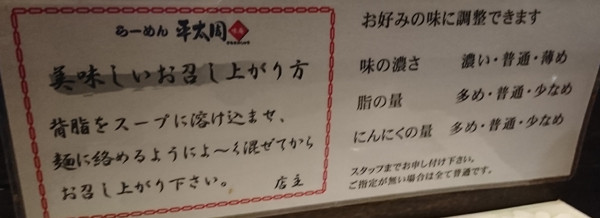 らーめん 平太周
美味しいお召し上がり方
背脂をスープに溶け込ませ、
麺に絡めるようによ〜く混ぜてから
お召し上がり下さい。 店主
お好みの味に調整できます
味の濃さ 濃い・普通・薄め
脂の量 多め・普通・少なめ
にんにくの量 多め・普通・少なめ
スタッフまでお申し付け下さい。
ご指定が無い場合は全て普通です。